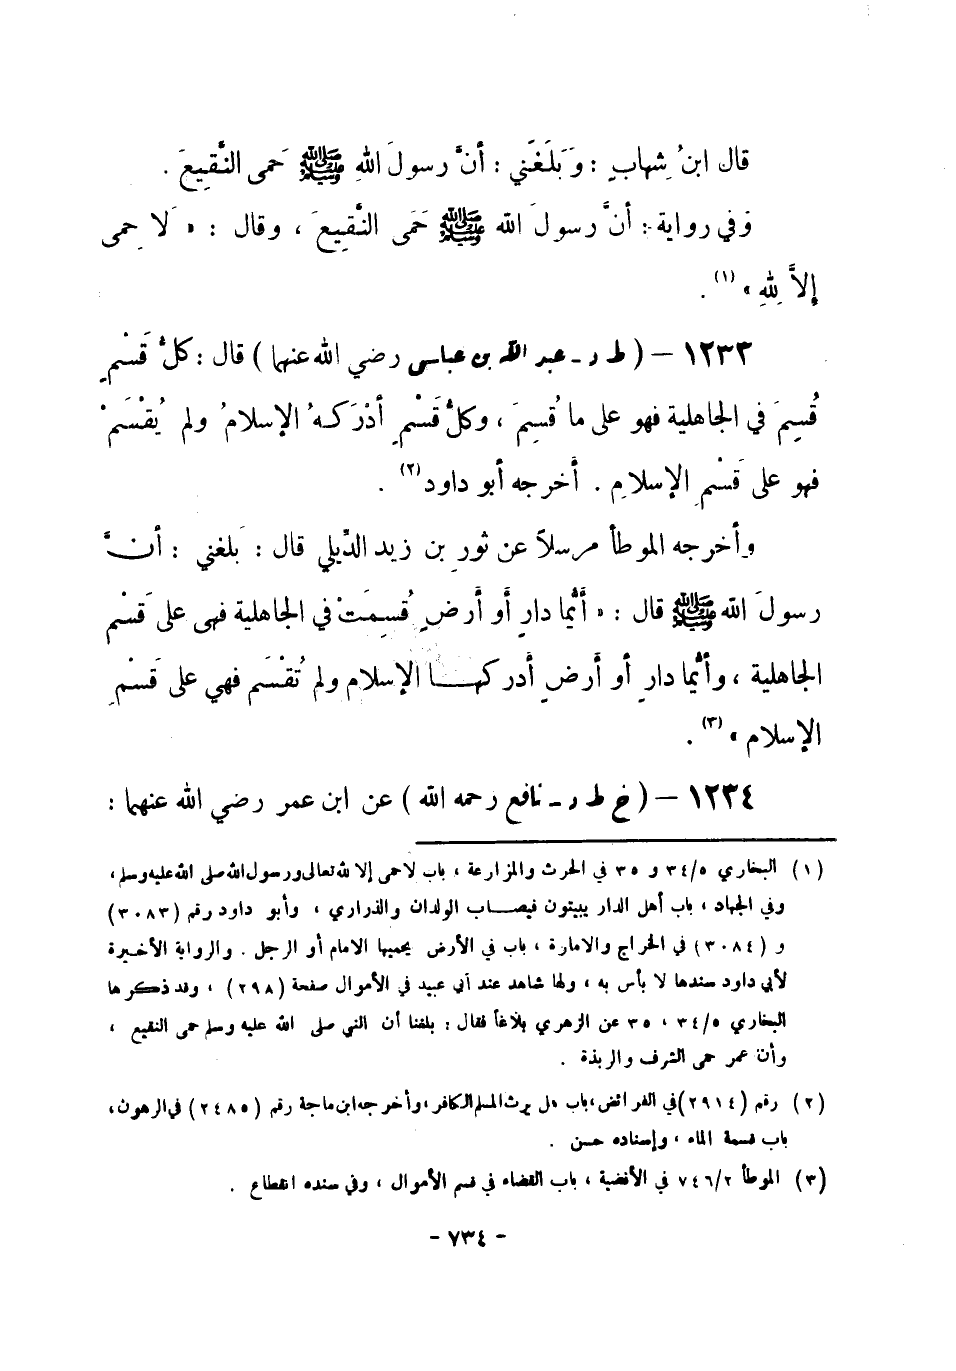 قال ابنُ شِهابٍ : وَبَلَغَني : أنَّ رسولَ اللهِ ﷺ حَمى النَّقِيعَ .
وَفي رواية : أنَّ رسولَ الله ﷺ حَمَى النَّقِيعَ ، وقال : « لَا حِمى
إلاَّ لِلهِ » (١) .
١٢٣٣ - ( ط د - عبد الله بن عباس رضي الله عنهما ) قال : كلُّ قَسْمٍ
قُسِمَ في الجاهلية فهو على ما قُسِمَ ، وكلُّ قَسْمٍ أدْرَكهُ الإسلامُ ولم يُقْسَمْ
فهو على قَسْمِ الإسلامِ . أخرجه أبو داود (٢) .
وأخرجه الموطأ مرسلاً عن ثورِ بن زيد الدِّيلي قال : بَلغني : أنَّ
رسولَ الله ﷺ قال : « أيُّما دارٍ أو أرضٍ قُسِمَتْ في الجاهلية فهى على قَسْمِ
الجاهلية ، وأيُّما دارٍ أو أرضٍ أدركها الإسلام ولم تُقْسَم فهي على قَسْمِ
الإسلام » (٣) .
١٢٣٤ - ( خ ط د - نافع رحمه الله ) عن ابن عمر رضي الله عنهما :
(١) البخاري ٣٤/٥ و ٣٥ في الحرث والمزارعة ، باب لاحمى إلا لله تعالى ورسول الله صلى الله عليه وسلم ،
وفي الجهاد ، باب أهل الدار يبيتون فيصاب الولدان والذراري ، وأبو داود رقم (٣٠٨٣)
و (٣٠٨٤) في الخراج والامارة ، باب في الأرض يحميها الامام أو الرجل . والرواية الأخيرة
لأبي داود سندها لا بأس به ، ولها شاهد عند أبي عبيد في الأموال صفحة (٢٩٨) ، وقد ذكرها
البخاري ٣٤/٥ ، ٣٥ عن الزهري بلاغاً فقال : بلغنا أن النبي صلى الله عليه وسلم حمى النقيع ،
وأن عمر حمى الشرف والربذة .
(٢) رقم (٢٩١٤) في الفرائض ، باب هل يرث المسلم الكافر ، وأخرجه ابن ماجة رقم (٢٤٨٥) في الرهون ،
باب قسمة الماء ، وإسناده حسن .
(٣) الموطأ ٧٤٦/٢ في الأقضية ، باب القضاء في قسم الأموال ، وفي سنده انقطاع .
- ٧٣٤ -